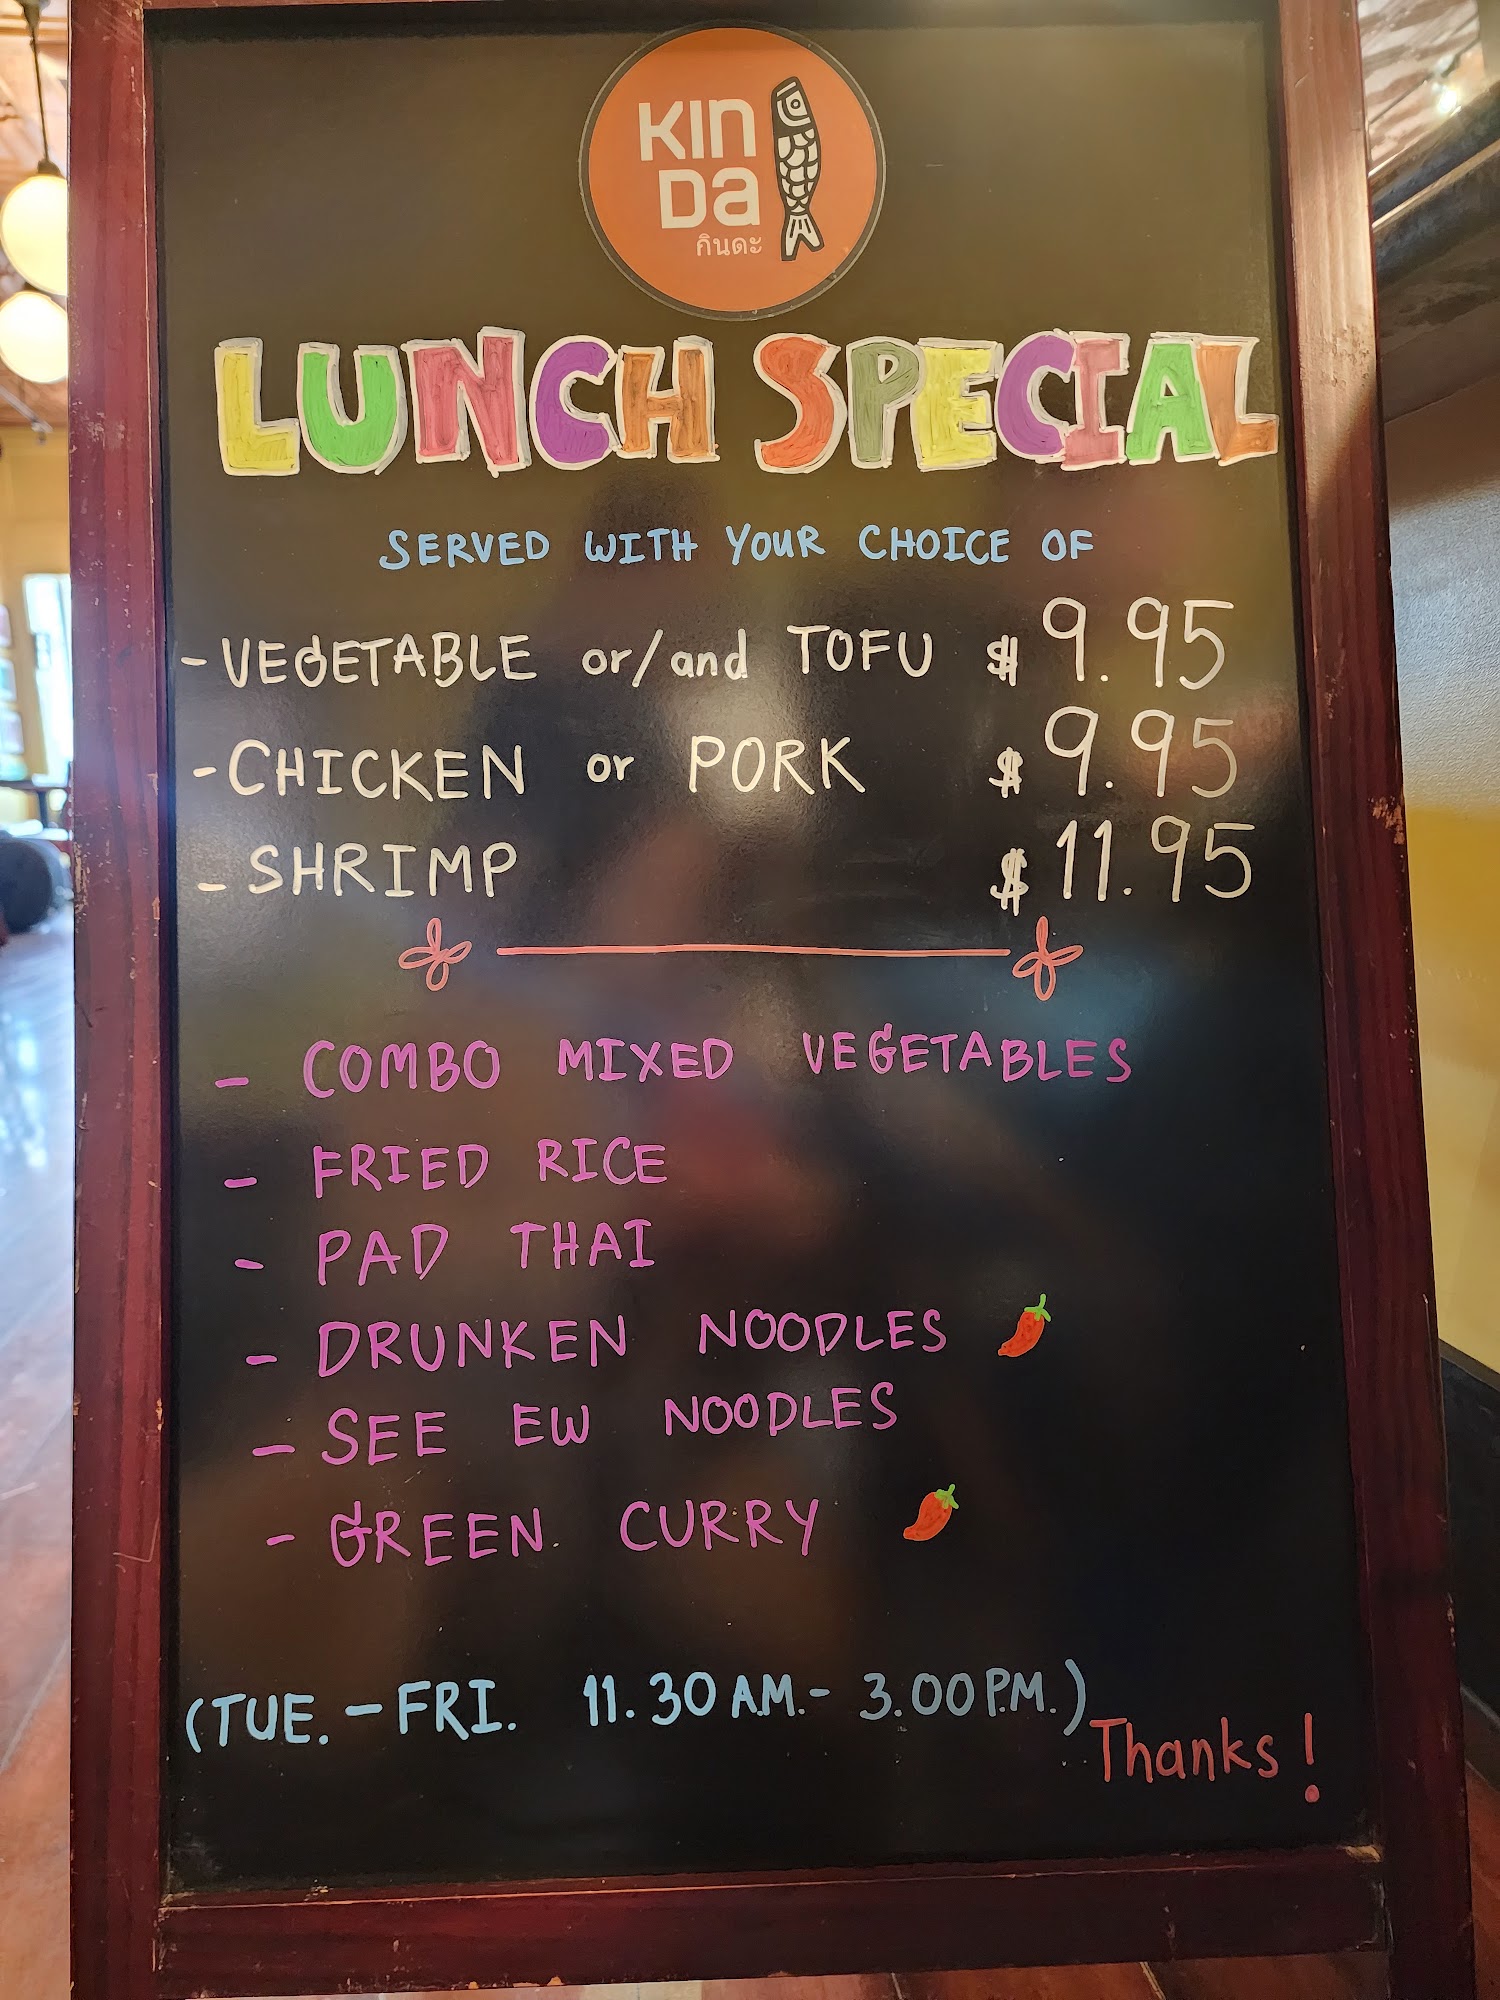 KIN
Da
กินดะ
LUNCH SPECIAL
SERVED WITH YOUR CHOICE OF
- VEGETABLE or/and TOFU $ 9.95
- CHICKEN or PORK $ 9.95
- SHRIMP $ 11.95
- COMBO MIXED VEGETABLES
- FRIED RICE
- PAD THAI
- DRUNKEN NOODLES
- SEE EW NOODLES
- GREEN CURRY
(TUE. - FRI. 11.30 A.M. - 3.00 P.M.)
Thanks!